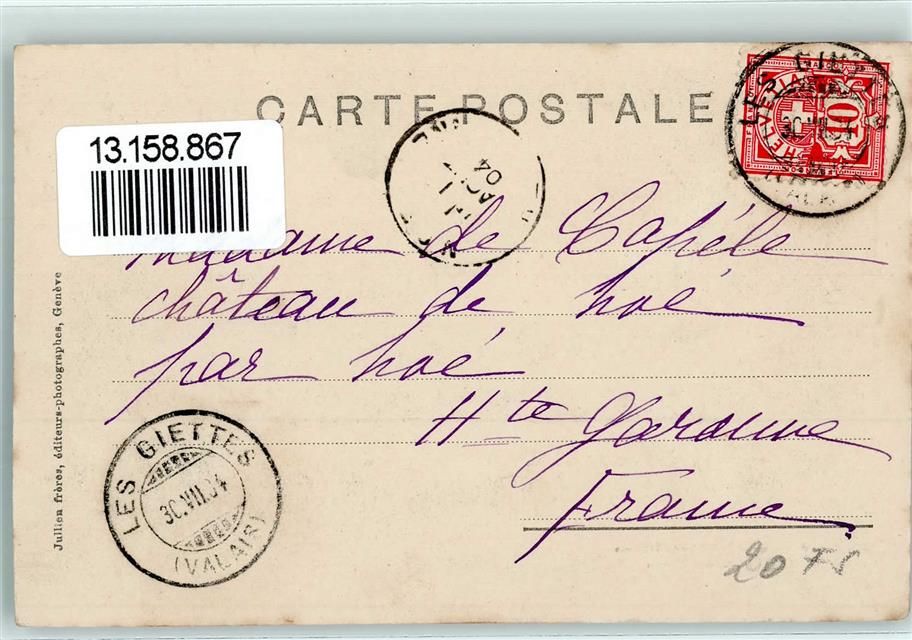 CARTE POSTALE
13.158.867
HELVETIA
10
LES GIETTES
30.VII.04
Madame de Capéle
château de noé
par noé
Hte Garonne
France
LES GIETTES
30.VII.04
(VALAIS)
Jullien frères, éditeurs-photographes, Genève
20 FS